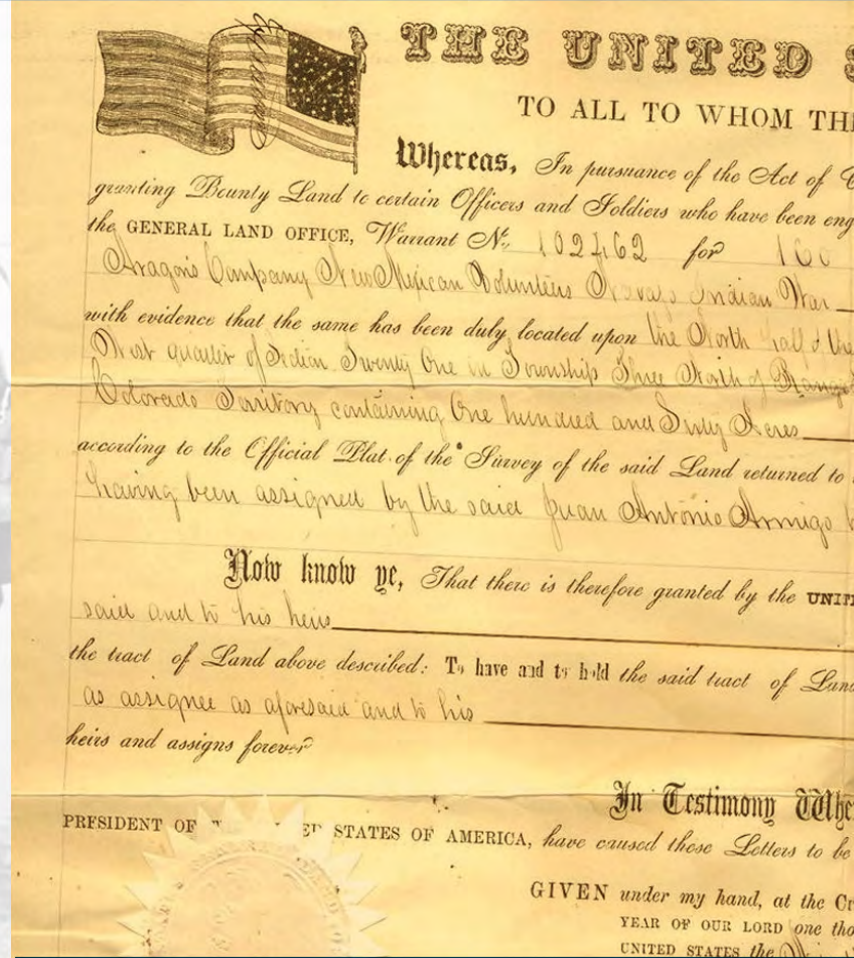 THE UNITED S
TO ALL TO WHOM THE
Whereas, In pursuance of the Act of C
granting Bounty Land to certain Officers and Soldiers who have been eng
the GENERAL LAND OFFICE, Warrant No., 102462 for 160
Aragon's Company New Mexican Volunteers Navajo Indian War
with evidence that the same has been duly located upon the North half of the
West quarter of Section Twenty One in Township Three North of Range
Colorado Territory containing One hundred and Sixty Acres
according to the Official Plat of the Survey of the said Land returned to
having been assigned by the said Juan Antonio Armigo
Now know ye, That there is therefore granted by the UNIT
said and to his heirs
the tract of Land above described: To have and to hold the said tract of Land
as assignee as aforesaid and to his
heirs and assigns forever
In Testimony Whe
PRESIDENT OF STATES OF AMERICA, have caused these Letters to be
GIVEN under my hand, at the CI
YEAR OF OUR LORD one tho
UNITED STATES the